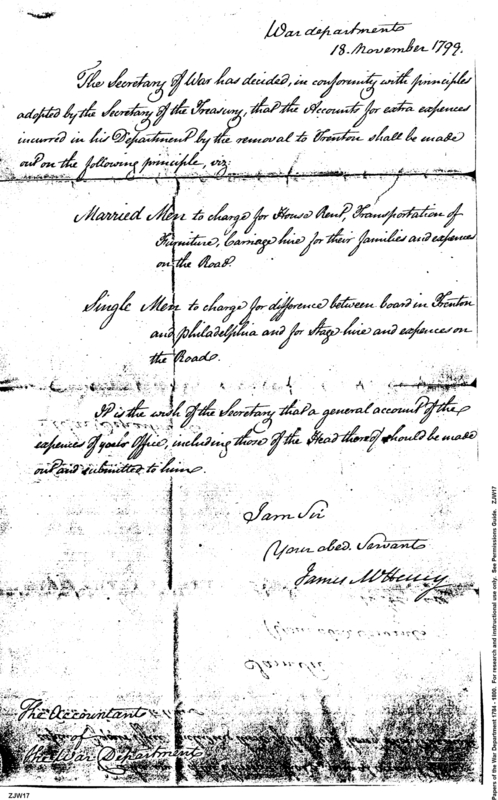 War department
18. November 1799.
The Secretary of War has decided, in conformity with principles
adopted by the Secretary of the Treasury, that the Accounts for extra expences
incurred in his Department by the removal to Trenton shall be made
out on the following principle, viz:
Married Men to charge for House Rent, Transportation of
Furniture, Carriage hire for their families and expences
on the Road.
Single Men to charge for difference between board in Trenton
and Philadelphia and for Stage hire and expences on
the Road.
It is the wish of the Secretary that a general account of the
expences of your Office, including those of the Head thereof should be made
out and submitted to him.
I am Sir
Your obed. Servant
James McHenry
The Accountant
of
the War Department
ZJW17
Papers of the War Department 1784 - 1800. For research and instructional use only. See Permissions Guide. ZJW17